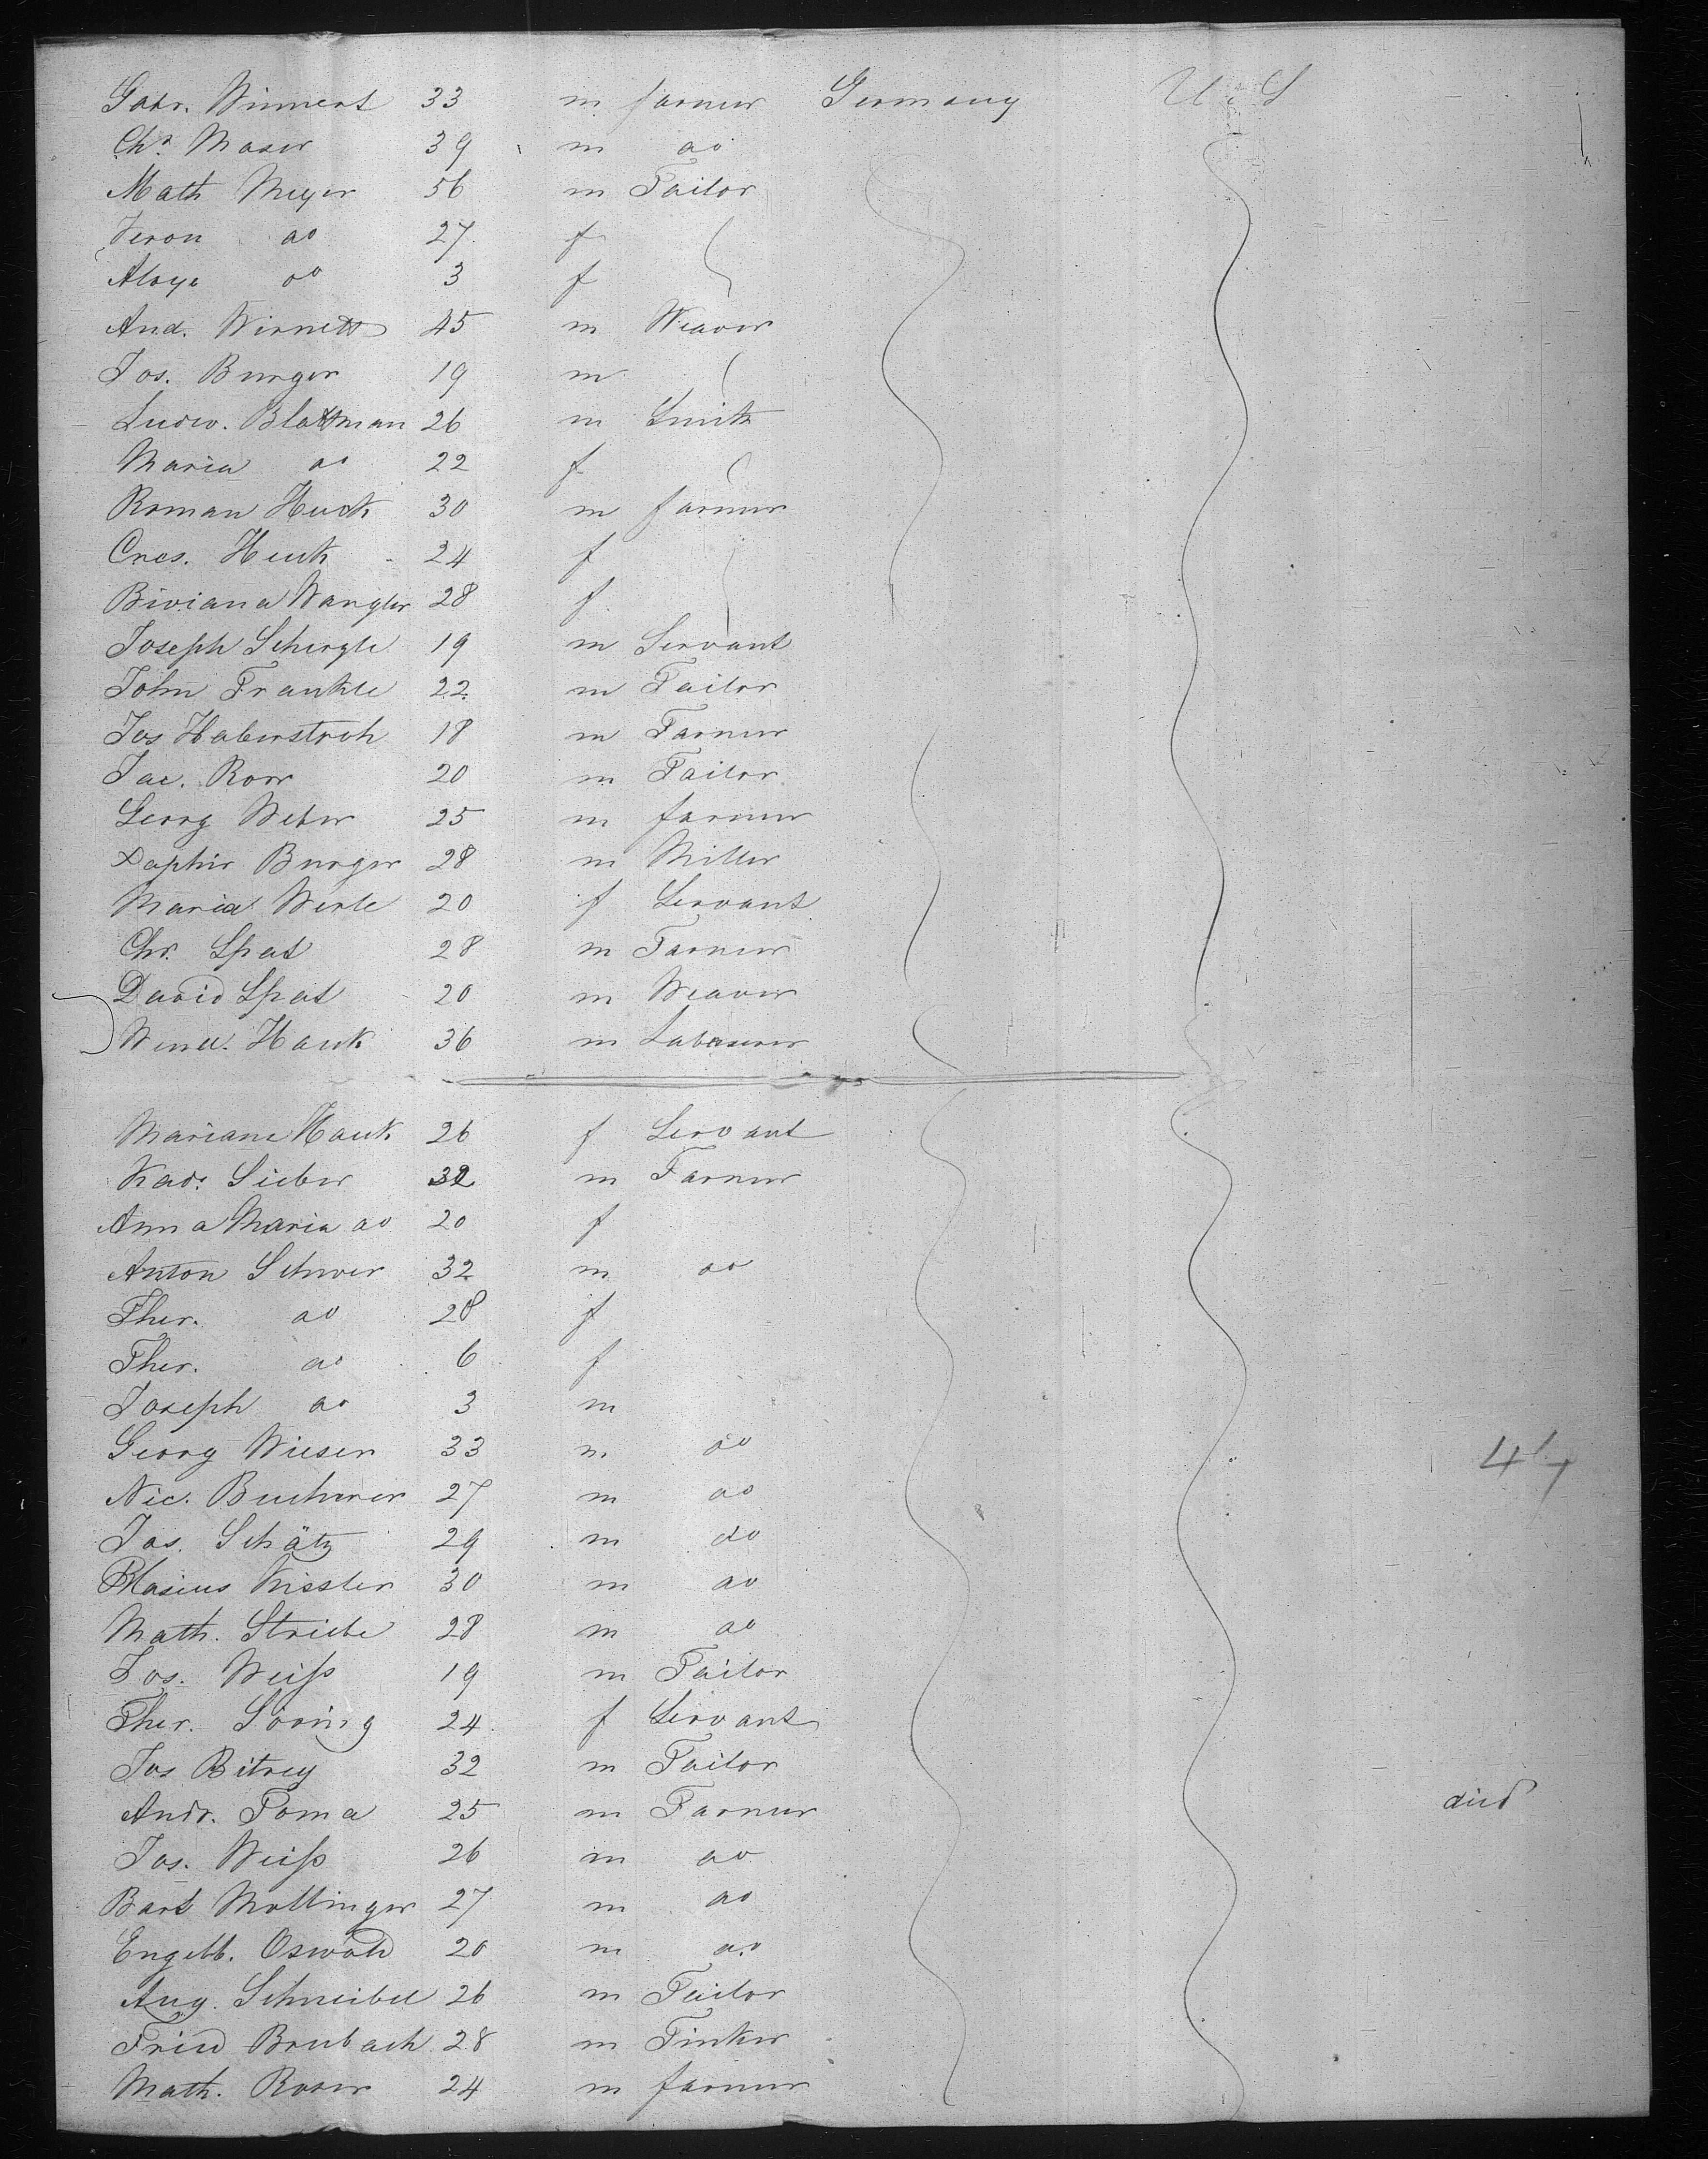 Gabr. Winnert 33 m farmer Germany U. S
Chr Maser 39 m do
Math Meyer 56 m Tailor
Veron do 27 f
Aloys do 3 f
And. Wirnett 45 m Weaver
Jos. Burger 19 m
Ludw. Blattman 26 m Smith
Maria do 22 f
Roman Huck 30 m farmer
Cres. Heuk 24 f
Biviana Wangler 28 f
Joseph Schergle 19 m Servant
John Frankle 22 m Tailor
Jos Haberstroh 18 m Farmer
Jac. Rorr 20 m Tailor
Georg Weber 25 m farmer
Xaphir Burger 28 m Miller
Maria Werle 20 f Servant
Chr. Spat 28 m Farmer
David Spat 20 m Weaver
Wend. Hauk 36 m Labourer
Mariane Hauk 26 f Servant
Kad. Sieber 32 m Farmer
Anna Maria do 20 f
Anton Schwer 32 m do
Ther. do 28 f
Ther. do 6 f
Joseph do 3 m
Georg Wieser 33 m do 47
Nic. Buchrer 27 m do
Jos. Schätz 29 m do
Blasius Kissler 30 m do
Math. Striebe 28 m do
Jos. Weiss 19 m Tailor
Ther. Söring 24 f Servant
Jos Bitrey 32 m Tailor
Andr. Toma 25 m Farmer died
Jos. Weiss 26 m do
Bart Mollinger 27 m do
Engelb. Oswald 20 m do
Aug. Schneibel 26 m Tailor
Fried Brubach 28 m Tinker
Math. Roser 24 m farmer